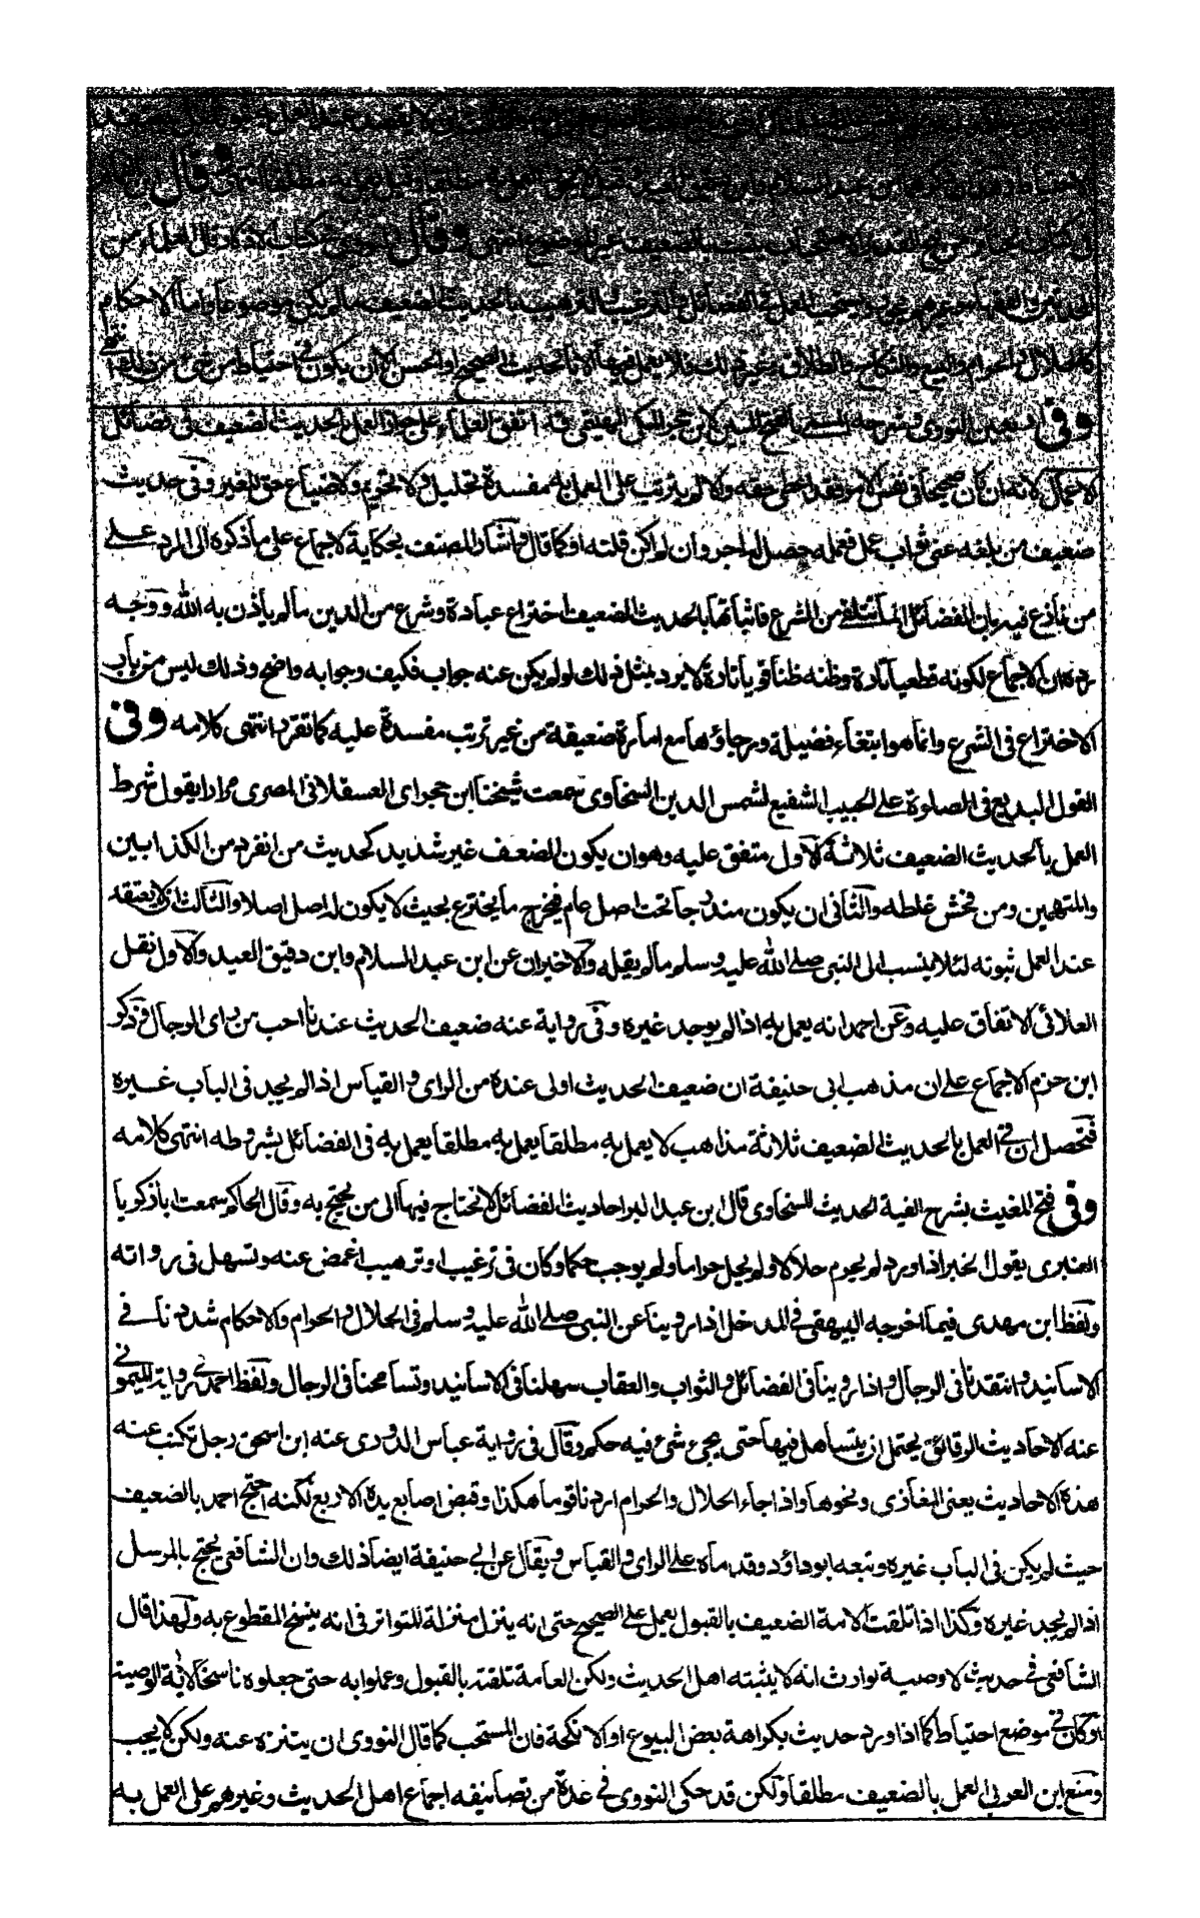 وقال
وقال النووي في كتاب الاذكار قال العلماء من
المحدثين والفقهاء وغيرهم يجوز ويستحب العمل في الفضائل والترغيب والترهيب بالحديث الضعيف مالم يكن موضوعا واما الاحكام
كالحلال والحرام والبيع والنكاح والطلاق وغير ذلك فلا يعمل فيها الا بالحديث الصحيح او الحسن الا ان يكون في احتياط من شئ من ذلك انتهى
وفي اربعين النووي وشرحه المسمى بالفتح المبين لابن حجر المكي الهيتمي قد اتفق العلماء على جواز العمل بالحديث الضعيف في فضائل
الاعمال لانه ان كان صحيحا في نفس الامر فقد اعطى حقه والا لم يترتب على العمل به مفسدة تحليل ولا تحريم ولا ضياع حق للغير وفي حديث
ضعيف من بلغه عني ثواب عمل فعمله حصل له اجره وان لم اكن قلته او كما قال واشار المصنف بحكاية الاجماع على ما ذكره الى الرد على
من نازع فيه بان الفضائل انما تتلقى من الشرع فاثباتها بالحديث الضعيف اختراع عبادة وشرع من الدين ما لم ياذن به الله ووجه
رده ان الاجماع لكونه قطعيا تارة وظنه ظنا قويا تارة لا يرد بمثل ذلك لو لم يكن عنه جواب فكيف وجوابه واضح وذلك ليس من باب
الاختراع في الشرع وانما هو ابتغاء فضيلة ورجاؤها مع امارة ضعيفة من غير ترتب مفسدة عليه كما تقرر انتهى كلامه وفي
القول البديع في الصلوة على الحبيب الشفيع لشمس الدين السخاوي سمعت شيخنا ابن حجر اي العسقلاني المصري مرارا يقول شرط
العمل بالحديث الضعيف ثلاثة الاول متفق عليه وهو ان يكون الضعف غير شديد كحديث من انفرد من الكذابين
والمتهمين ومن فحش غلطه والثاني ان يكون مندرجا تحت اصل عام فيخرج ما يخترع بحيث لا يكون له اصل اصلا والثالث ان لا يعتقد
عند العمل ثبوته لئلا ينسب الى النبي صلى الله عليه وسلم ما لم يقله والاخيران عن ابن عبد السلام وابن دقيق العيد والاول نقل
العلائي الاتفاق عليه وعن احمد انه يعمل به اذا لم يوجد غيره وفي رواية عنه ضعيف الحديث عندنا احب من راى الرجال وذكر
ابن حزم الاجماع على ان مذهب ابي حنيفة ان ضعيف الحديث اولى عنده من الراى والقياس اذا لم يجد في الباب غيره
فتحصل ان في العمل بالحديث الضعيف ثلاثة مذاهب لا يعمل به مطلقا يعمل به مطلقا يعمل به في الفضائل بشروطه انتهى كلامه
وفي فتح المغيث بشرح الفية الحديث للسخاوي قال ابن عبد البر احاديث الفضائل لا نحتاج فيها الى من يحتج به وقال الحاكم سمعت ابا زكريا
العنبري يقول الخبر اذا ورد لم يحرم حلالا ولم يحل حراما ولم يوجب حكما وكان في ترغيب او ترهيب اغمض عنه وتسهل في رواته
ولفظ ابن مهدى فيما اخرجه البيهقي في المدخل اذا روينا عن النبي صلى الله عليه وسلم في الحلال والحرام والاحكام شددنا في
الاسانيد وانتقدنا في الرجال واذا روينا في الفضائل والثواب والعقاب سهلنا في الاسانيد وتسامحنا في الرجال ولفظ احمد في رواية الميموني
عنه الاحاديث الرقائق يحتمل ان يتساهل فيها حتى يجئ شئ فيه حكم وقال في رواية عباس الدوري عنه ابن اسحق رجل تكتب عنه
هذه الاحاديث يعني المغازى ونحوها واذا جاء الحلال والحرام اردنا قوما هكذا وقبض اصابع يده الاربع لكنه احتج احمد بالضعيف
حيث لم يكن في الباب غيره وتبعه ابو داؤد وقدماه على الراى والقياس ويقال عن ابي حنيفة ايضا ذلك وان الشافعي يحتج بالمرسل
اذا لم يجد غيره وكذا اذا تلقت الامة الضعيف بالقبول يعمل على الصحيح حتى انه ينزل منزلة المتواتر في انه ينسخ المقطوع به ولهذا قال
الشافعي في حديث لا وصية لوارث انه لا يثبته اهل الحديث ولكن العامة تلقته بالقبول وعملوا به حتى جعلوه ناسخا لاٰية الوصية
او كان في موضع احتياط كما اذا ورد حديث بكراهة بعض البيوع او الانكحة فان المستحب كما قال النووى ان يتنزه عنه ولكن لا يجب
ومنع ابن العربي العمل بالضعيف مطلقا ولكن قد حكى النووي في عدة من تصانيفه اجماع اهل الحديث وغيرهم على العمل به